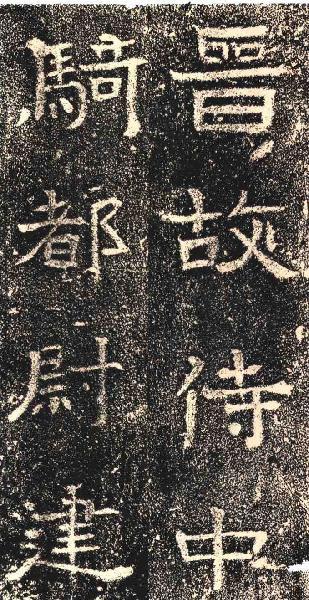 晉故侍中
騎都尉建